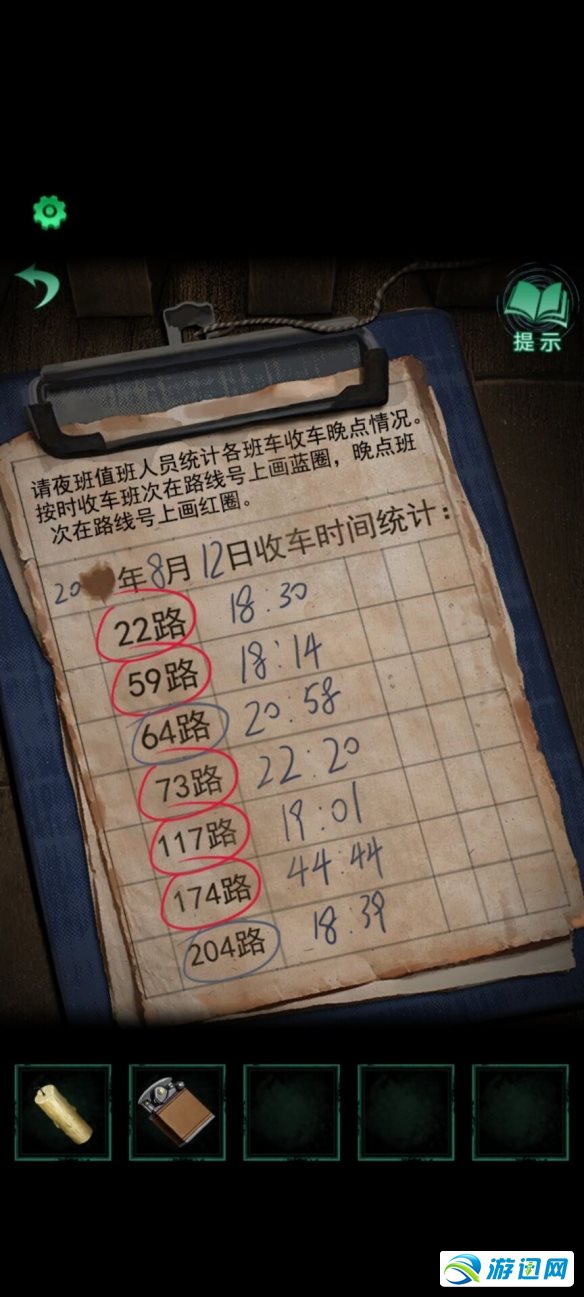 提示
请夜班值班人员统计各班车收车晚点情况。
按时收车班次在路线号上画蓝圈，晚点班
次在路线号上画红圈。
20 年8月12日收车时间统计：
22路 18:30
59路 18:14
64路 20:58
73路 22:20
117路 19:01
174路 44:44
204路 18:39
游迅网